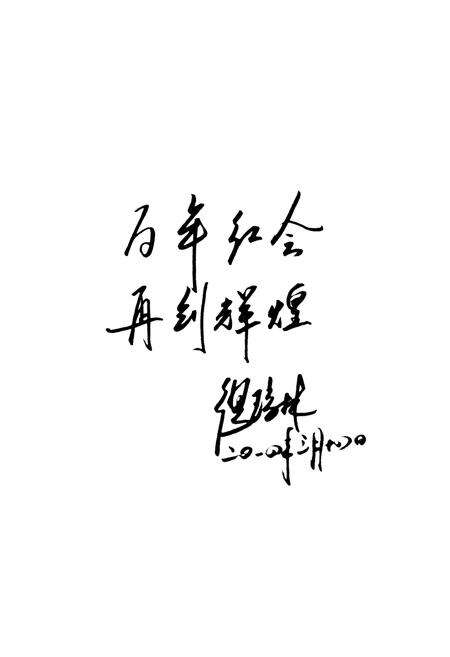 百年红会
再创辉煌
二〇一四年三月十八日